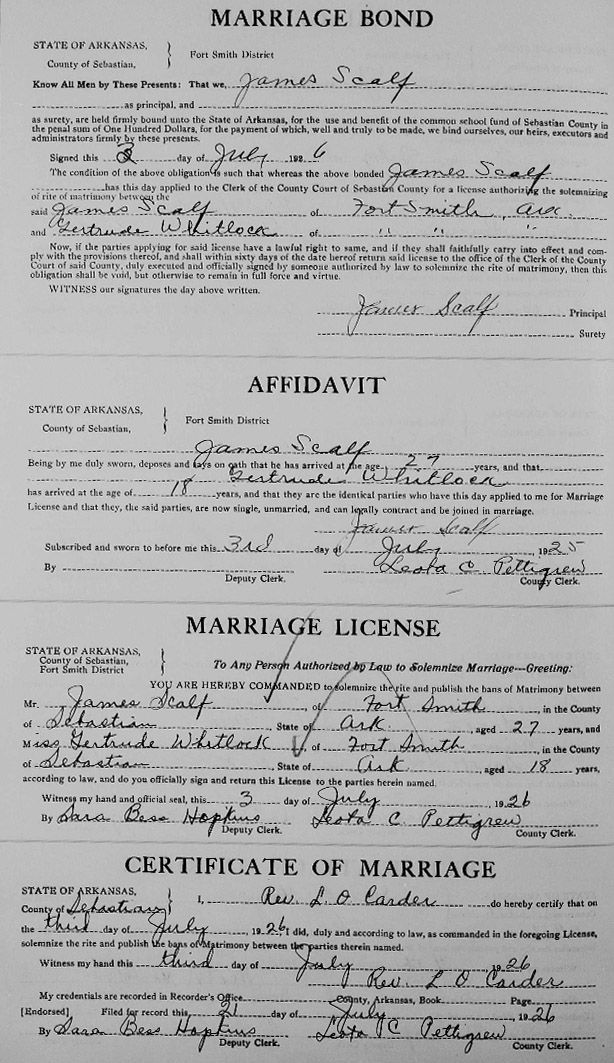 MARRIAGE BOND
STATE OF ARKANSAS,
County of Sebastian,
Fort Smith District
Know All Men by These Presents: That we, James Scalf
as principal, and
as surety, are held firmly bound unto the State of Arkansas, for the use and benefit of the common school fund of Sebastian County in
the penal sum of One Hundred Dollars, for the payment of which, well and truly to be made, we bind ourselves, our heirs, executors and
administrators firmly by these presents.
Signed this 3 day of July 1926
The condition of the above obligation is such that whereas the above bonded James Scalf
has this day applied to the Clerk of the County Court of Sebastian County for a license authorizing the solemnizing
of rite of matrimony between the
said James Scalf of Fort Smith, Ark.
and Gertrude Whitlock of " " "
Now, if the parties applying for said license have a lawful right to same, and if they shall faithfully carry into effect and com-
ply with the provisions thereof, and shall within sixty days of the date hereof return said license to the office of the Clerk of the County
Court of said County, duly executed and officially signed by someone authorized by law to solemnize the rite of matrimony, then this
obligation shall be void, but otherwise to remain in full force and virtue.
WITNESS our signatures the day above written.
James Scalf Principal
Surety
AFFIDAVIT
STATE OF ARKANSAS,
County of Sebastian,
Fort Smith District
James Scalf
Being by me duly sworn, deposes and says on oath that he has arrived at the age 27 years, and that
Gertrude Whitlock
has arrived at the age of 18 years, and that they are the identical parties who have this day applied to me for Marriage
License and that they, the said parties, are now single, unmarried, and can legally contract and be joined in marriage.
James Scalf
Subscribed and sworn to before me this 3rd day of July, 1925
By Leota C Pettigrew
Deputy Clerk. County Clerk.
MARRIAGE LICENSE
STATE OF ARKANSAS,
County of Sebastian,
Fort Smith District
To Any Person Authorized by Law to Solemnize Marriage—Greeting:
YOU ARE HEREBY COMMANDED to solemnize the rite and publish the bans of Matrimony between
Mr. James Scalf, of Fort Smith, in the County
of Sebastian, State of Ark, aged 27 years, and
Miss Gertrude Whitlock, of Fort Smith, in the County
of Sebastian State of Ark, aged 18 years,
according to law, and do you officially sign and return this License to the parties herein named.
Witness my hand and official seal, this 3 day of July, 1926
By Sara Bess Hopkins Leota C. Pettigrew
Deputy Clerk. County Clerk.
CERTIFICATE OF MARRIAGE
STATE OF ARKANSAS,
County of Sebastian
I, Rev. L. O Carder do hereby certify that on
the third day of July, 1926 I did, duly and according to law, as commanded in the foregoing License,
solemnize the rite and publish the bans of Matrimony between the parties therein named.
Witness my hand this third day of July 1926
Rev. L O Carder
My credentials are recorded in Recorder's Office County, Arkansas, Book Page
[Endorsed] Filed for record this 21 day of July, 1926
By Sara Bess Hopkins Leota C Pettigrew
Deputy Clerk. County Clerk.